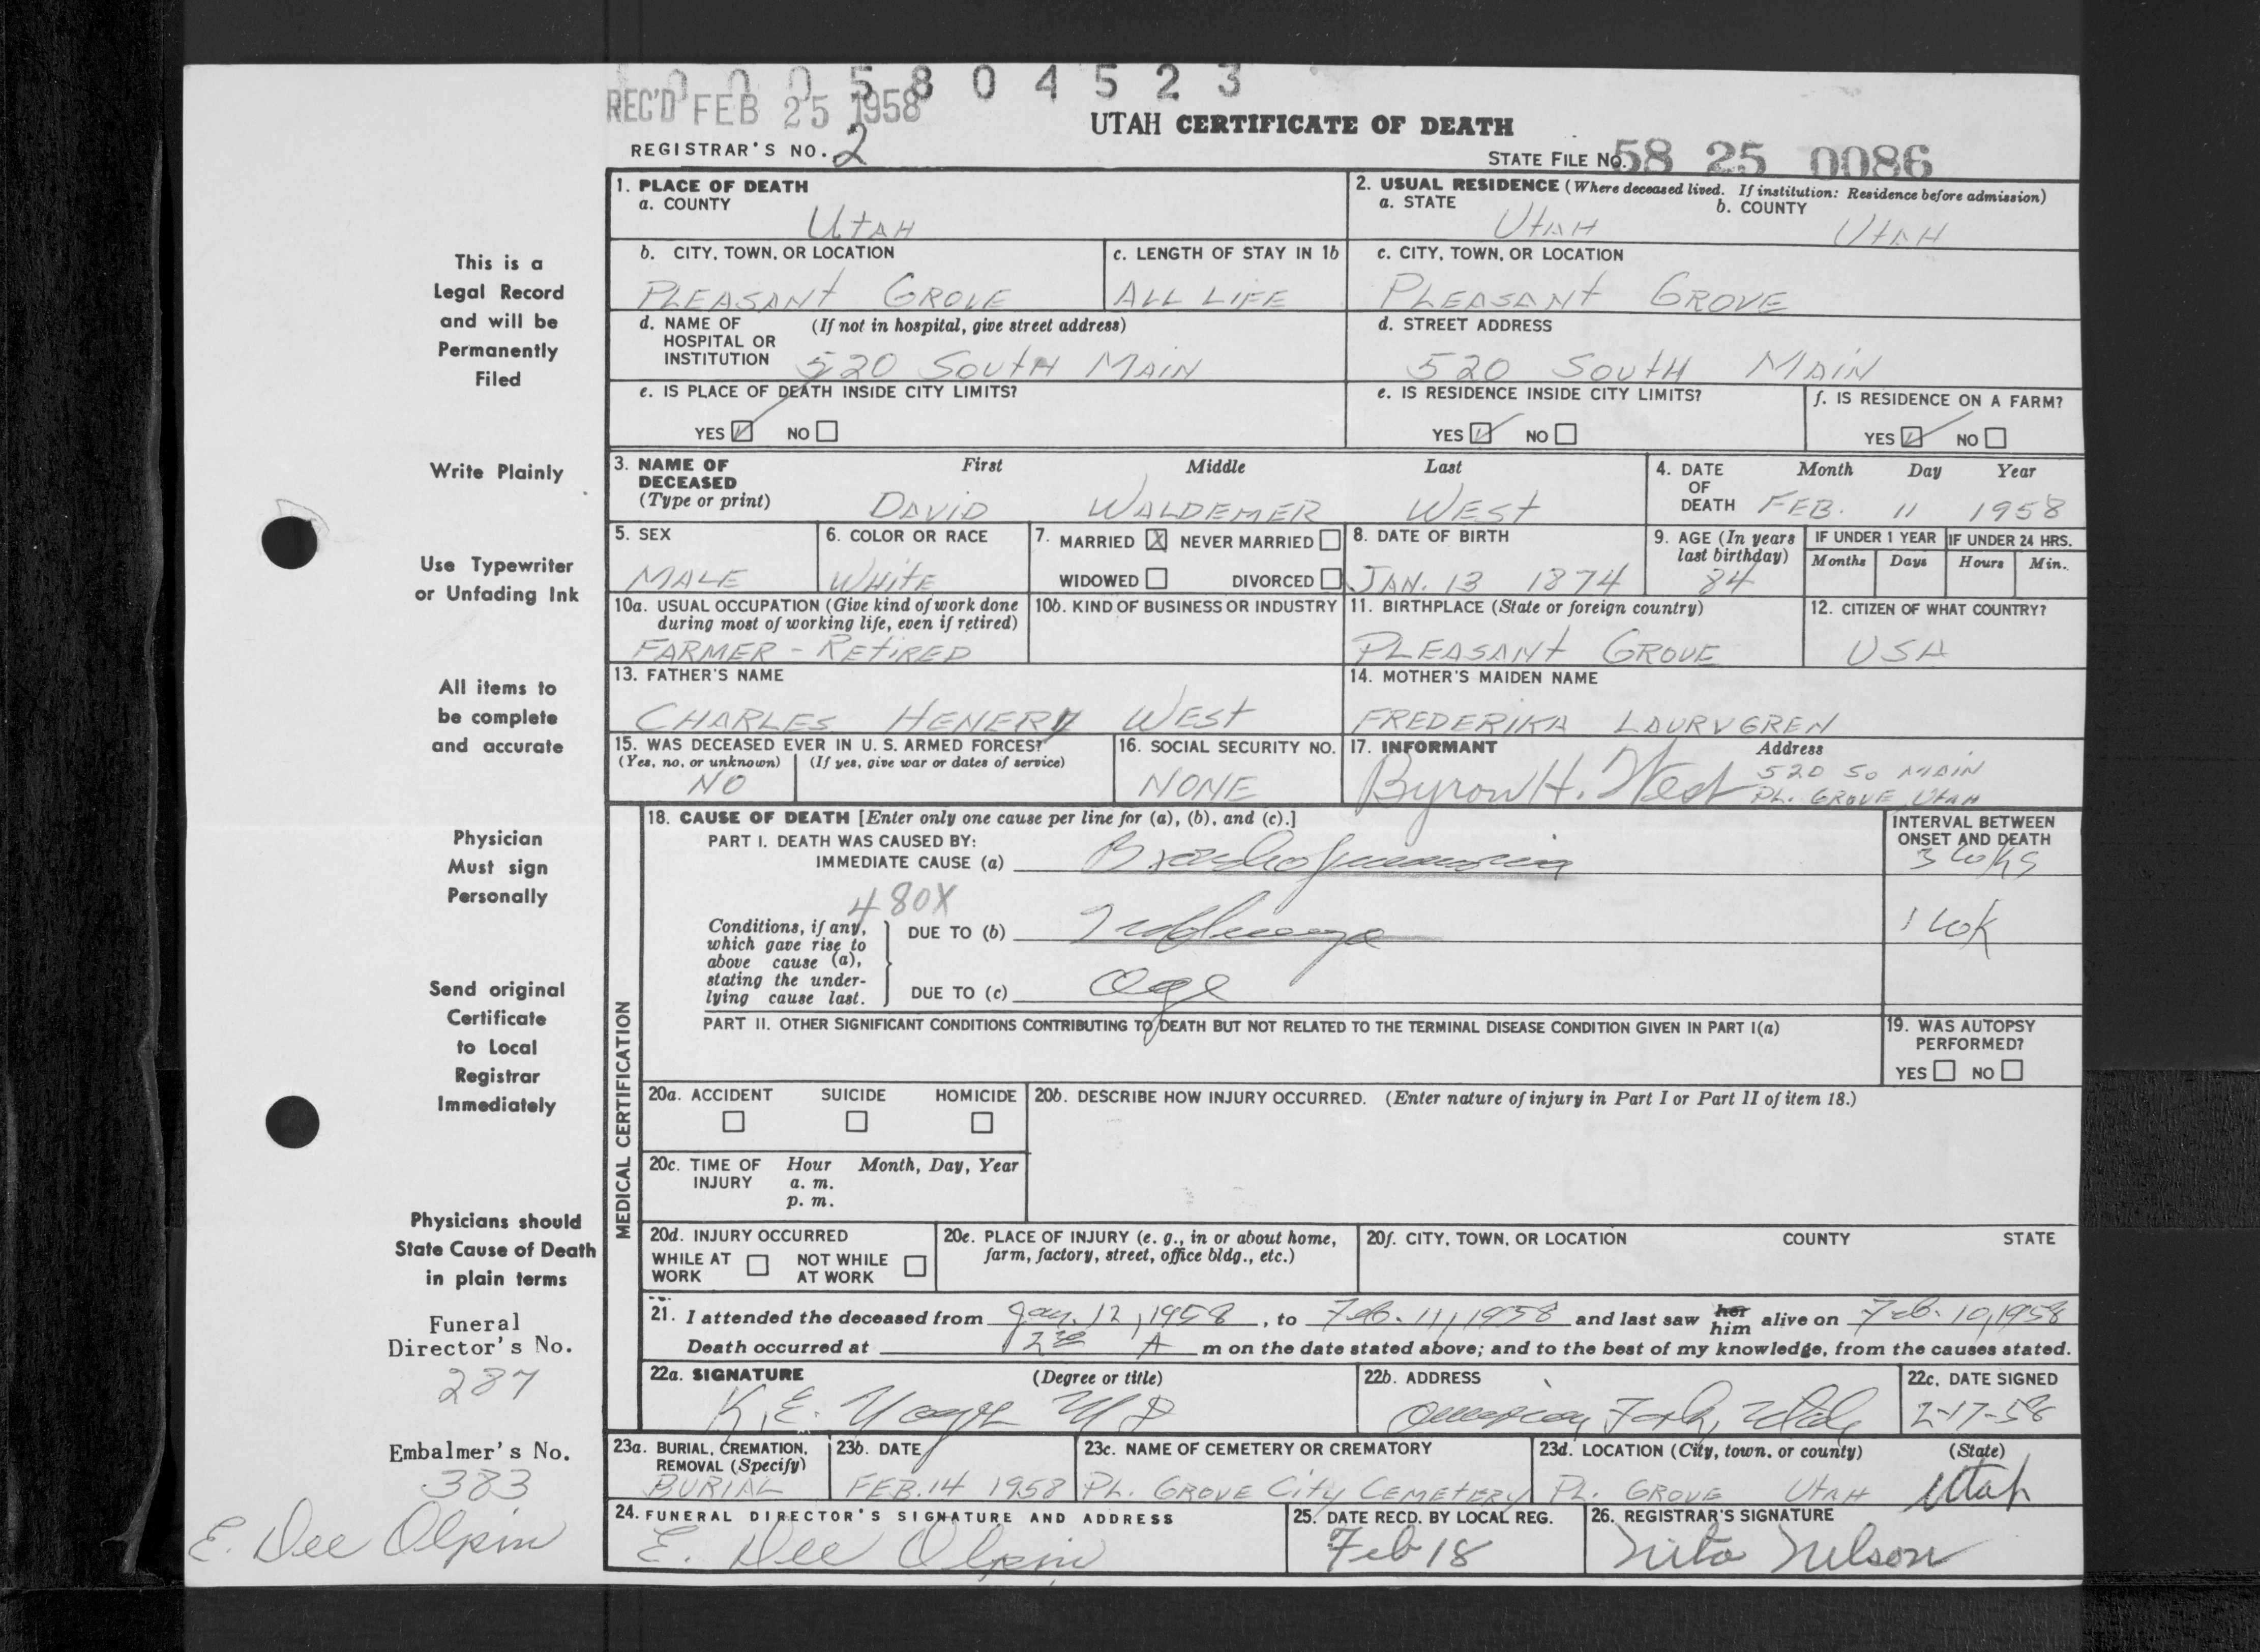 0 0 0 5 8 0 4 5 2 3
REC'D FEB 25 1958
UTAH CERTIFICATE OF DEATH
REGISTRAR'S NO. 2
STATE FILE NO. 58 25 0086
This is a
Legal Record
and will be
Permanently
Filed
Write Plainly
Use Typewriter
or Unfading Ink
All items to
be complete
and accurate
Physician
Must sign
Personally
Send original
Certificate
to Local
Registrar
Immediately
Physicians should
State Cause of Death
in plain terms
Funeral
Director's No.
287
Embalmer's No.
383
E. Dee Olpin
1. PLACE OF DEATH
a. COUNTY
UTAH
2. USUAL RESIDENCE (Where deceased lived. If institution: Residence before admission)
a. STATE b. COUNTY
UTAH UTAH
b. CITY, TOWN, OR LOCATION
PLEASANT GROVE
c. LENGTH OF STAY IN 1b
ALL LIFE
c. CITY, TOWN, OR LOCATION
PLEASANT GROVE
d. NAME OF (If not in hospital, give street address)
HOSPITAL OR
INSTITUTION 520 SOUTH MAIN
d. STREET ADDRESS
520 SOUTH MAIN
e. IS PLACE OF DEATH INSIDE CITY LIMITS?
YES NO
e. IS RESIDENCE INSIDE CITY LIMITS?
YES NO
f. IS RESIDENCE ON A FARM?
YES NO
3. NAME OF First Middle Last
DECEASED
(Type or print) DAVID WALDEMER WEST
4. DATE Month Day Year
OF
DEATH FEB. 11 1958
5. SEX
MALE
6. COLOR OR RACE
WHITE
7. MARRIED X NEVER MARRIED
WIDOWED DIVORCED
8. DATE OF BIRTH
JAN. 13 1874
9. AGE (In years
last birthday)
84
IF UNDER 1 YEAR IF UNDER 24 HRS.
Months Days Hours Min.
10a. USUAL OCCUPATION (Give kind of work done
during most of working life, even if retired)
FARMER - RETIRED
10b. KIND OF BUSINESS OR INDUSTRY
11. BIRTHPLACE (State or foreign country)
PLEASANT GROVE
12. CITIZEN OF WHAT COUNTRY?
USA
13. FATHER'S NAME
CHARLES HENERY WEST
14. MOTHER'S MAIDEN NAME
FREDERIKA LAURVGREN
15. WAS DECEASED EVER IN U. S. ARMED FORCES?
(Yes, no, or unknown) (If yes, give war or dates of service)
NO
16. SOCIAL SECURITY NO.
NONE
17. INFORMANT Address
Byron H. West 520 SO MAIN
PL. GROVE UTAH
MEDICAL CERTIFICATION
18. CAUSE OF DEATH [Enter only one cause per line for (a), (b), and (c).]
PART I. DEATH WAS CAUSED BY:
IMMEDIATE CAUSE (a) Bronchopneumonia
INTERVAL BETWEEN
ONSET AND DEATH
3 wks
480X
Conditions, if any,
which gave rise to
above cause (a),
stating the under-
lying cause last.
DUE TO (b) Influenza 1 wk
DUE TO (c) Age
PART II. OTHER SIGNIFICANT CONDITIONS CONTRIBUTING TO DEATH BUT NOT RELATED TO THE TERMINAL DISEASE CONDITION GIVEN IN PART I(a)
19. WAS AUTOPSY
PERFORMED?
YES NO
20a. ACCIDENT SUICIDE HOMICIDE
20b. DESCRIBE HOW INJURY OCCURRED. (Enter nature of injury in Part I or Part II of item 18.)
20c. TIME OF Hour Month, Day, Year
INJURY a. m.
p. m.
20d. INJURY OCCURRED
WHILE AT NOT WHILE
WORK AT WORK
20e. PLACE OF INJURY (e. g., in or about home,
farm, factory, street, office bldg., etc.)
20f. CITY, TOWN, OR LOCATION COUNTY STATE
21. I attended the deceased from Jan. 12, 1958, to Feb. 11, 1958 and last saw her him alive on Feb. 10, 1958
Death occurred at A m on the date stated above; and to the best of my knowledge, from the causes stated.
22a. SIGNATURE (Degree or title)
K. E. MD
22b. ADDRESS
American Fork, Utah
22c. DATE SIGNED
2-17-58
23a. BURIAL, CREMATION,
REMOVAL (Specify)
BURIAL
23b. DATE
FEB. 14 1958
23c. NAME OF CEMETERY OR CREMATORY
PL. GROVE CITY CEMETERY
23d. LOCATION (City, town, or county) (State)
PL. GROVE UTAH Utah
24. FUNERAL DIRECTOR'S SIGNATURE AND ADDRESS
E. Dee Olpin
25. DATE RECD. BY LOCAL REG.
Feb 18
26. REGISTRAR'S SIGNATURE
Nelson